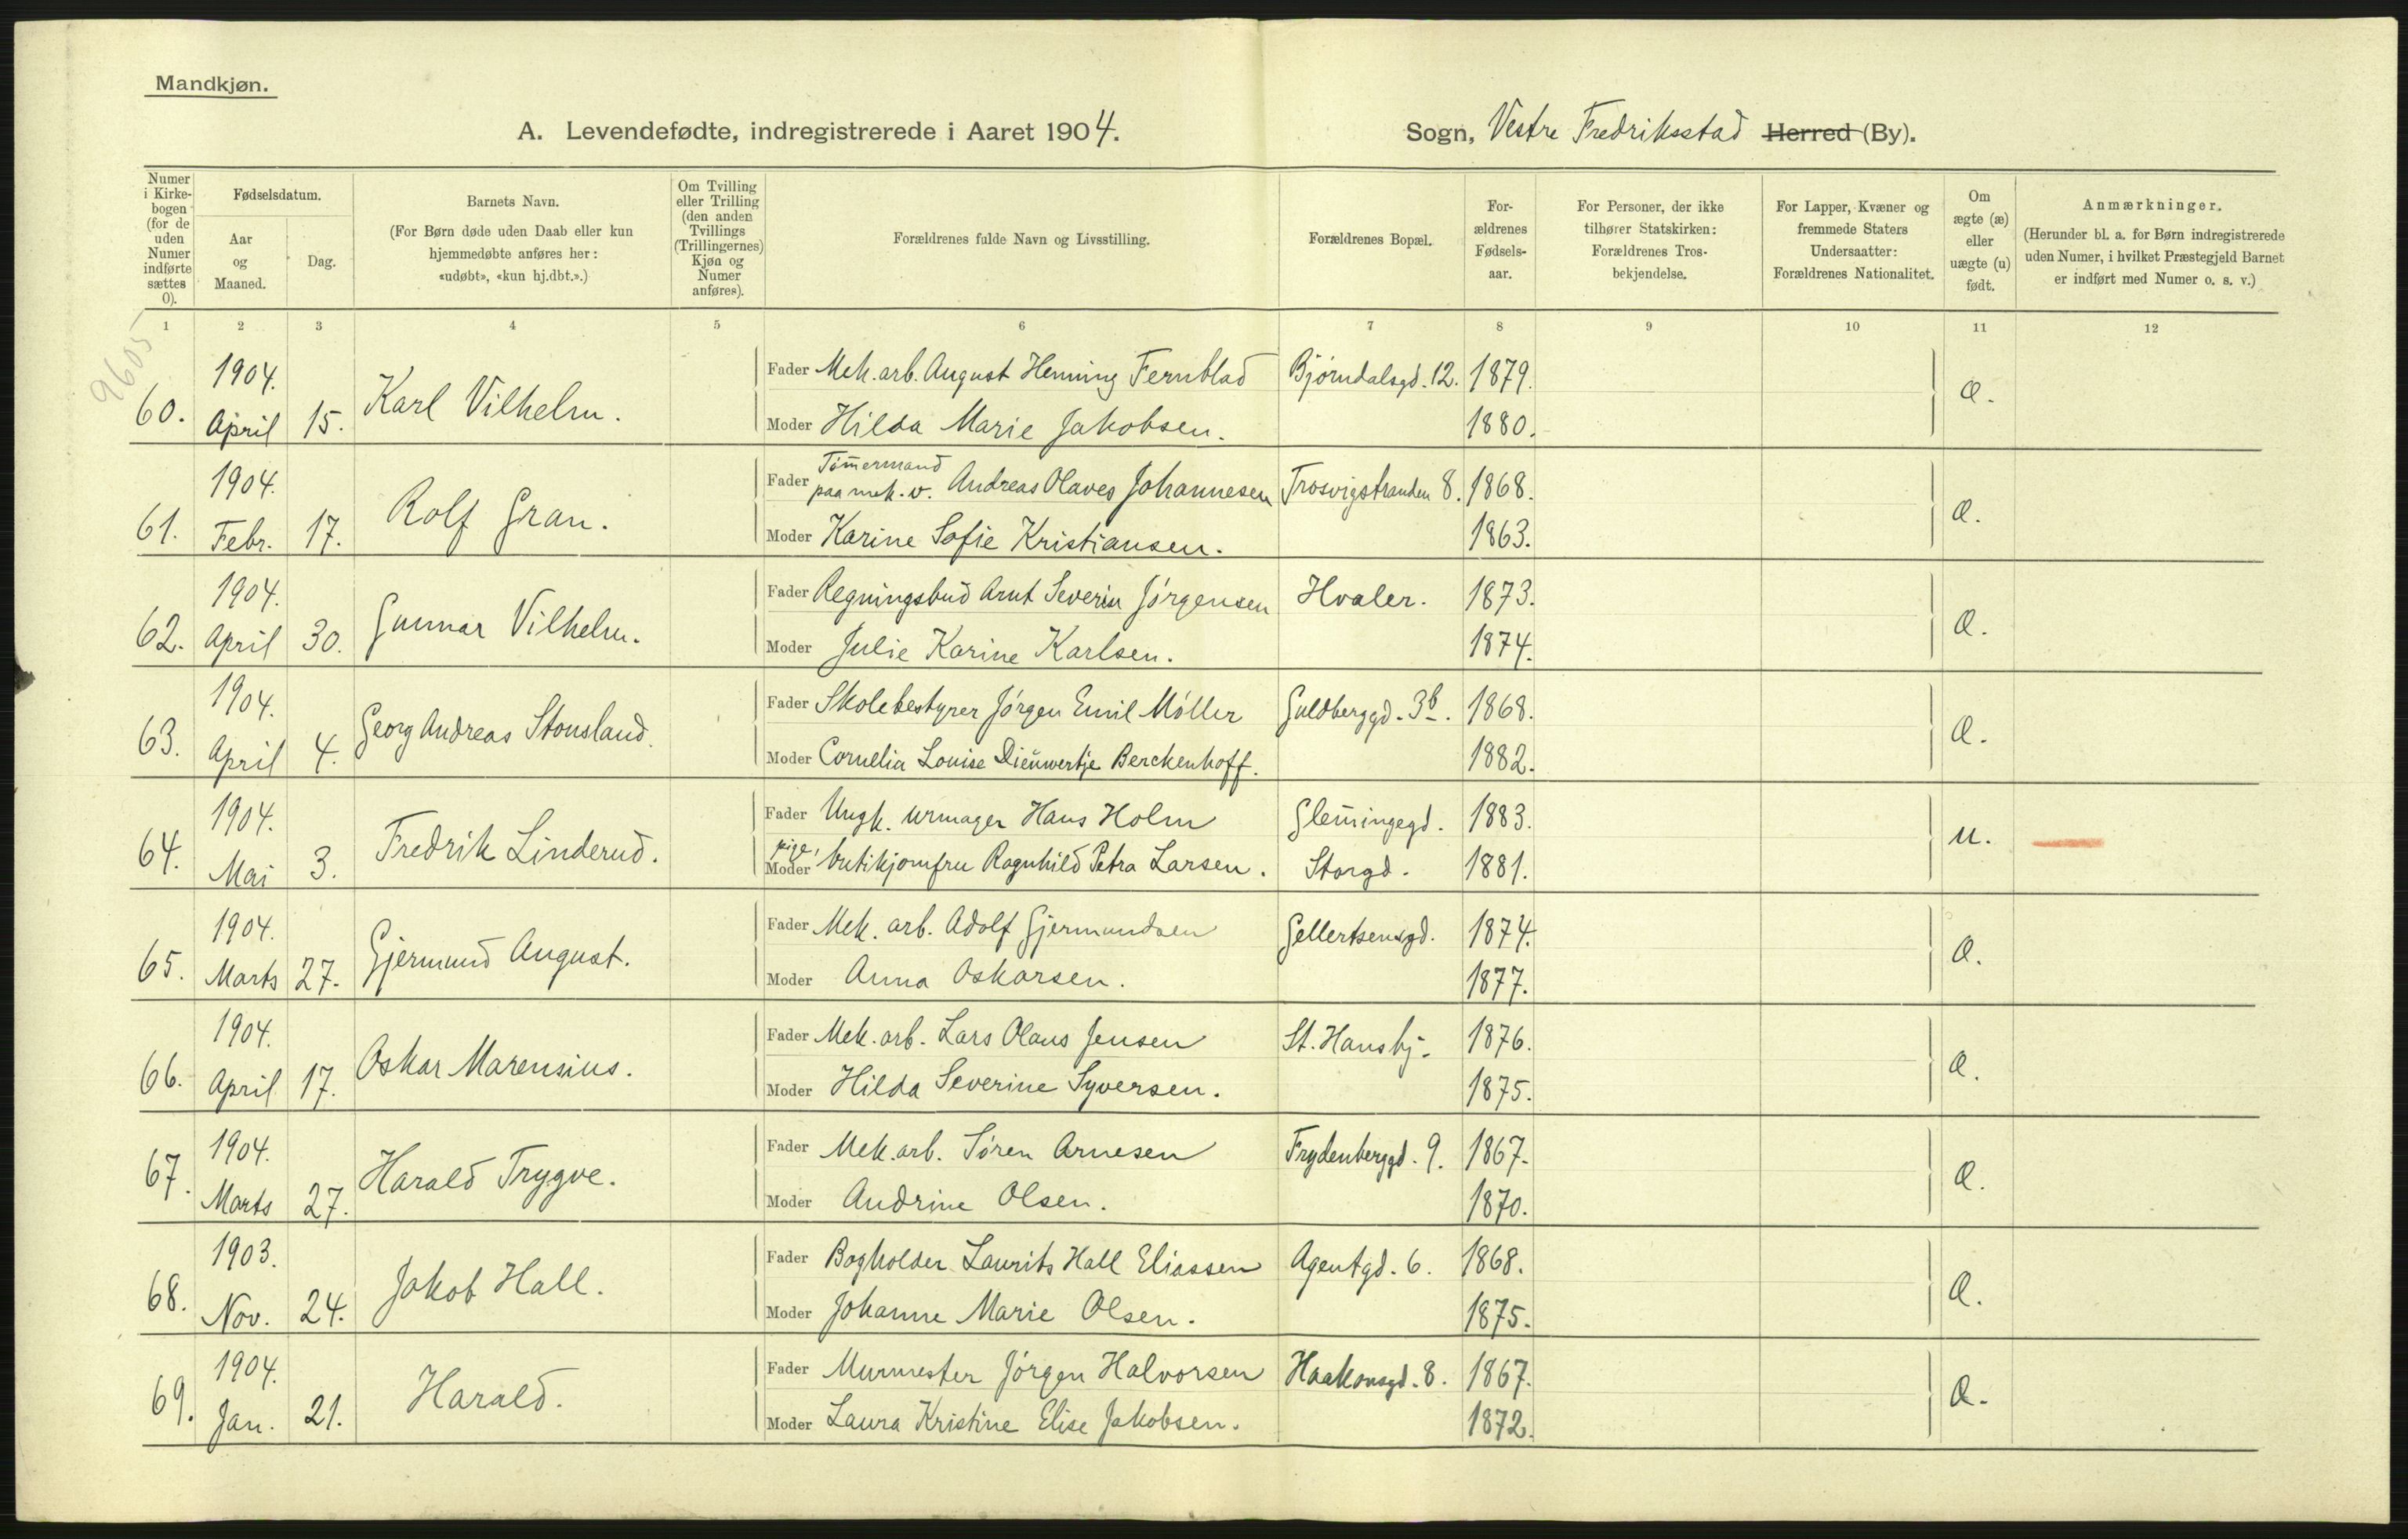 Mandkjøn.
A. Levendefødte, indregistrerede i Aaret 1904.
Sogn, Vestre Fredriksstad Herred (By).
Numer i Kirke-bogen (for de uden Numer indførte sættes 0).
Fødselsdatum.
Aar og Maaned.
Dag.
Barnets Navn.
(For Børn døde uden Daab eller kun hjemmedøbte anføres her: «udøbt», «kun hj.dbt.».)
Om Tvilling eller Trilling (den anden Tvillings (Trillingernes) Kjøn og Numer anføres).
Forældrenes fulde Navn og Livsstilling.
Forældrenes Bopæl.
For-ældrenes Fødsels-aar.
For Personer, der ikke tilhører Statskirken: Forældrenes Tros-bekjendelse.
For Lapper, Kvæner og fremmede Staters Undersaatter: Forældrenes Nationalitet.
Om ægte (æ) eller uægte (u) født.
Anmærkninger.
(Herunder bl. a. for Børn indregistrerede uden Numer, i hvilket Præstegjeld Barnet er indført med Numer o. s. v.)
1 2 3 4 5 6 7 8 9 10 11 12
9605
60. 1904. April 15. Karl Vilhelm. Fader Mek. arb. August Henning Fernblad Bjørndalsgd. 12. 1879. æ.
Moder Hilda Marie Jakobsen. 1880.
61. 1904. Febr. 17. Rolf Gran. Fader Tømermand paa mek. v. Andreas Olaves Johannesen Trosvigstranden 8. 1868. æ.
Moder Karine Sofie Kristiansen. 1863.
62. 1904. April 30. Gunnar Vilhelm. Fader Regningsbud Arnt Severin Jørgensen Hvaler. 1873. æ.
Moder Julie Karine Karlsen. 1874.
63. 1904. April 4. Georg Andreas Stousland. Fader Skolebestyrer Jørgen Emil Møller Guldberggd. 3b. 1868. æ.
Moder Cornelia Louise Dieuwertje Berckenhoff. 1882.
64. 1904. Mai 3. Fredrik Linderud. Fader Ungk. urmager Hans Holm Glem̄ingegd. 1883. u.
Moder pige, butikjomfru Ragnhild Petra Larsen. Storgd. 1881.
65. 1904. Marts 27. Gjermund August. Fader Mek. arb. Adolf Gjermundsen Gellertsensgd. 1874. æ.
Moder Anna Oskarsen. 1877.
66. 1904. April 17. Oskar Marensius. Fader Mek. arb. Lars Olaus Jensen St. Hansbj. 1876. æ.
Moder Hilda Severine Syversen. 1875.
67. 1904. Marts 27. Harald Trygve. Fader Mek. arb. Søren Arnesen Frydenberggd. 9. 1867. æ.
Moder Andrine Olsen. 1870.
68. 1903. Nov. 24. Jakob Hall. Fader Bogholder Laurits Hall Eliassen Agentgd. 6. 1868. æ.
Moder Johanne Marie Olsen. 1875.
69. 1904. Jan. 21. Harald. Fader Murmester Jørgen Halvorsen Haakonsgd. 8. 1867. æ.
Moder Laura Kristine Elise Jakobsen. 1872.